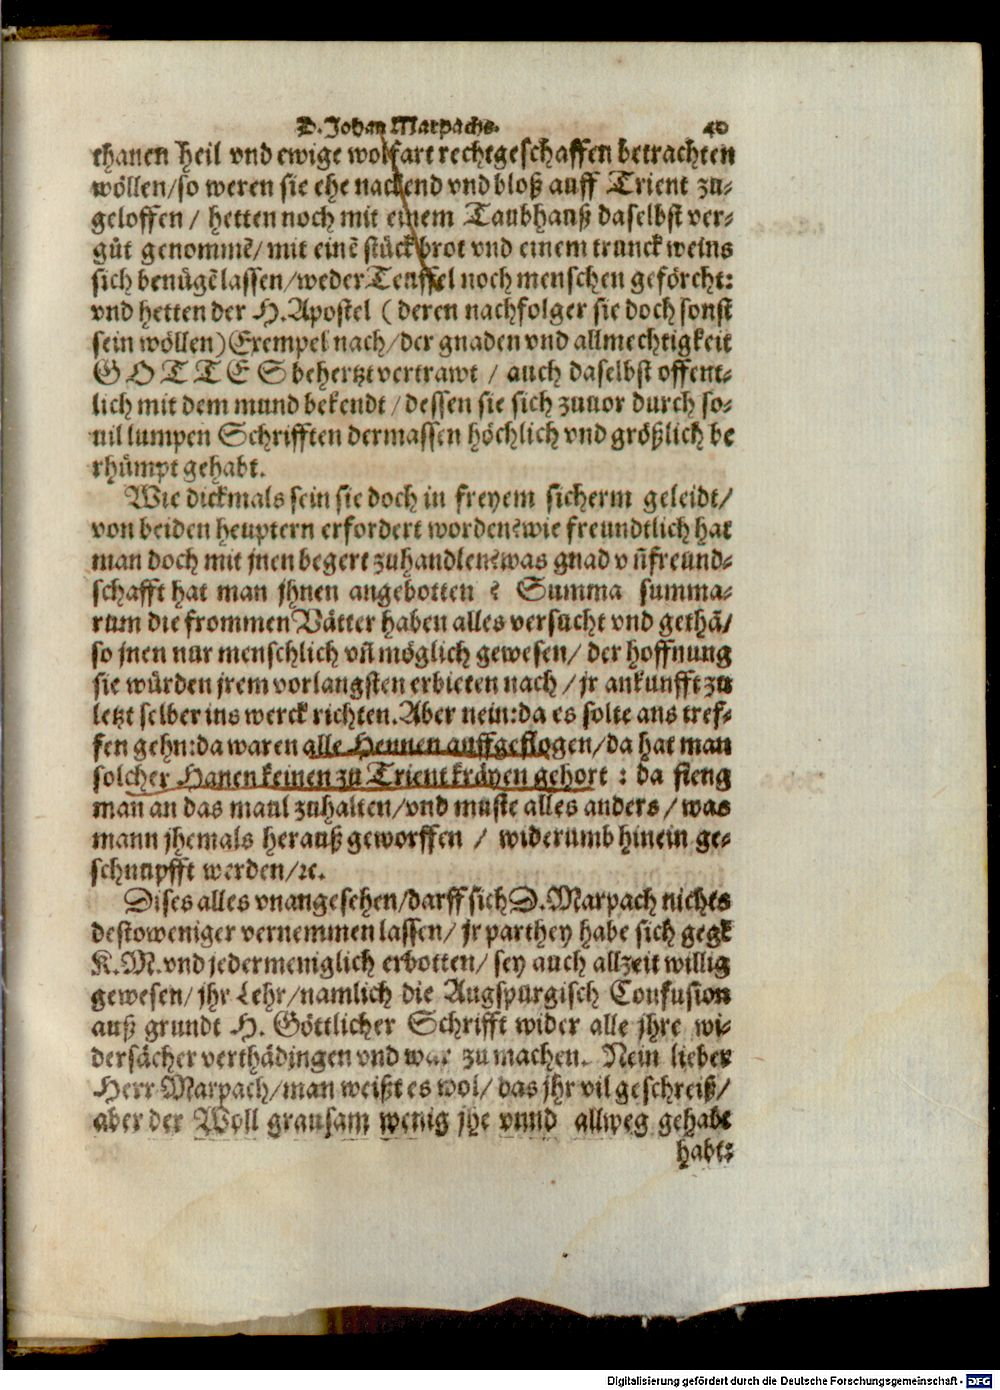 D. Johan Marpachs. 40
thanen heil vnd ewige wolfart rechtgeschaffen betrachten
wöllen/so weren sie ehe nackend vnd bloß auff Trient zu-
geloffen / hetten noch mit einem Taubhauß daselbst ver-
gůt genommē/ mit einē stück brot vnd einem trunck weins
sich benůgē lassen/weder Teuffel noch menschen geförcht:
vnd hetten der H. Apostel ( deren nachfolger sie doch sonst
sein wöllen) Exempel nach/der gnaden vnd allmechtigkeit
GOTTES behertzt vertrawt / auch daselbst offent-
lich mit dem mund bekendt/dessen sie sich zuuor durch so-
uil lumpen Schrifften dermassen höchlich vnd größlich be
rhůmpt gehabt.
Wie dickmals sein sie doch in freyem sicherm geleidt/
von beiden heuptern erfordert worden? wie freundtlich hat
man doch mit jnen begert zuhandlen? was gnad vn̄ freund-
schafft hat man jhnen angebotten ? Summa summa-
rum die frommen Vätter haben alles versucht vnd gethā/
so jnen nur menschlich vn̄ möglich gewesen/ der hoffnung
sie würden jrem vorlangsten erbieten nach / jr ankunfft zu
letzt selber ins werck richten. Aber nein: da es solte ans tref-
fen gehn: da waren alle Hennen auffgeflogen/da hat man
solcher Hanen keinen zu Trient kräyen gehort : da fieng
man an das maul zuhalten/vnd muste alles anders / was
mann jhemals herauß geworffen / widerumb hinein ge-
schnupfft werden/ꝛc.
Dises alles vnangesehen/darff sich D. Marpach nichts
destoweniger vernemmen lassen/ jr parthey habe sich gegē
K. M. vnd jedermeniglich erbotten/ sey auch allzeit willig
gewesen/ jhr Lehr/namlich die Augspurgisch Confusion
auß grundt H. Göttlicher Schrifft wider alle jhre wi-
dersächer verthädingen vnd war zu machen. Nein lieber
Herr Marpach/man weißt es wol/ das jhr vil geschreiß/
aber der Woll grausam wenig jhe vnnd allweg gehabt
habt:
Digitalisierung gefördert durch die Deutsche Forschungsgemeinschaft - DFG